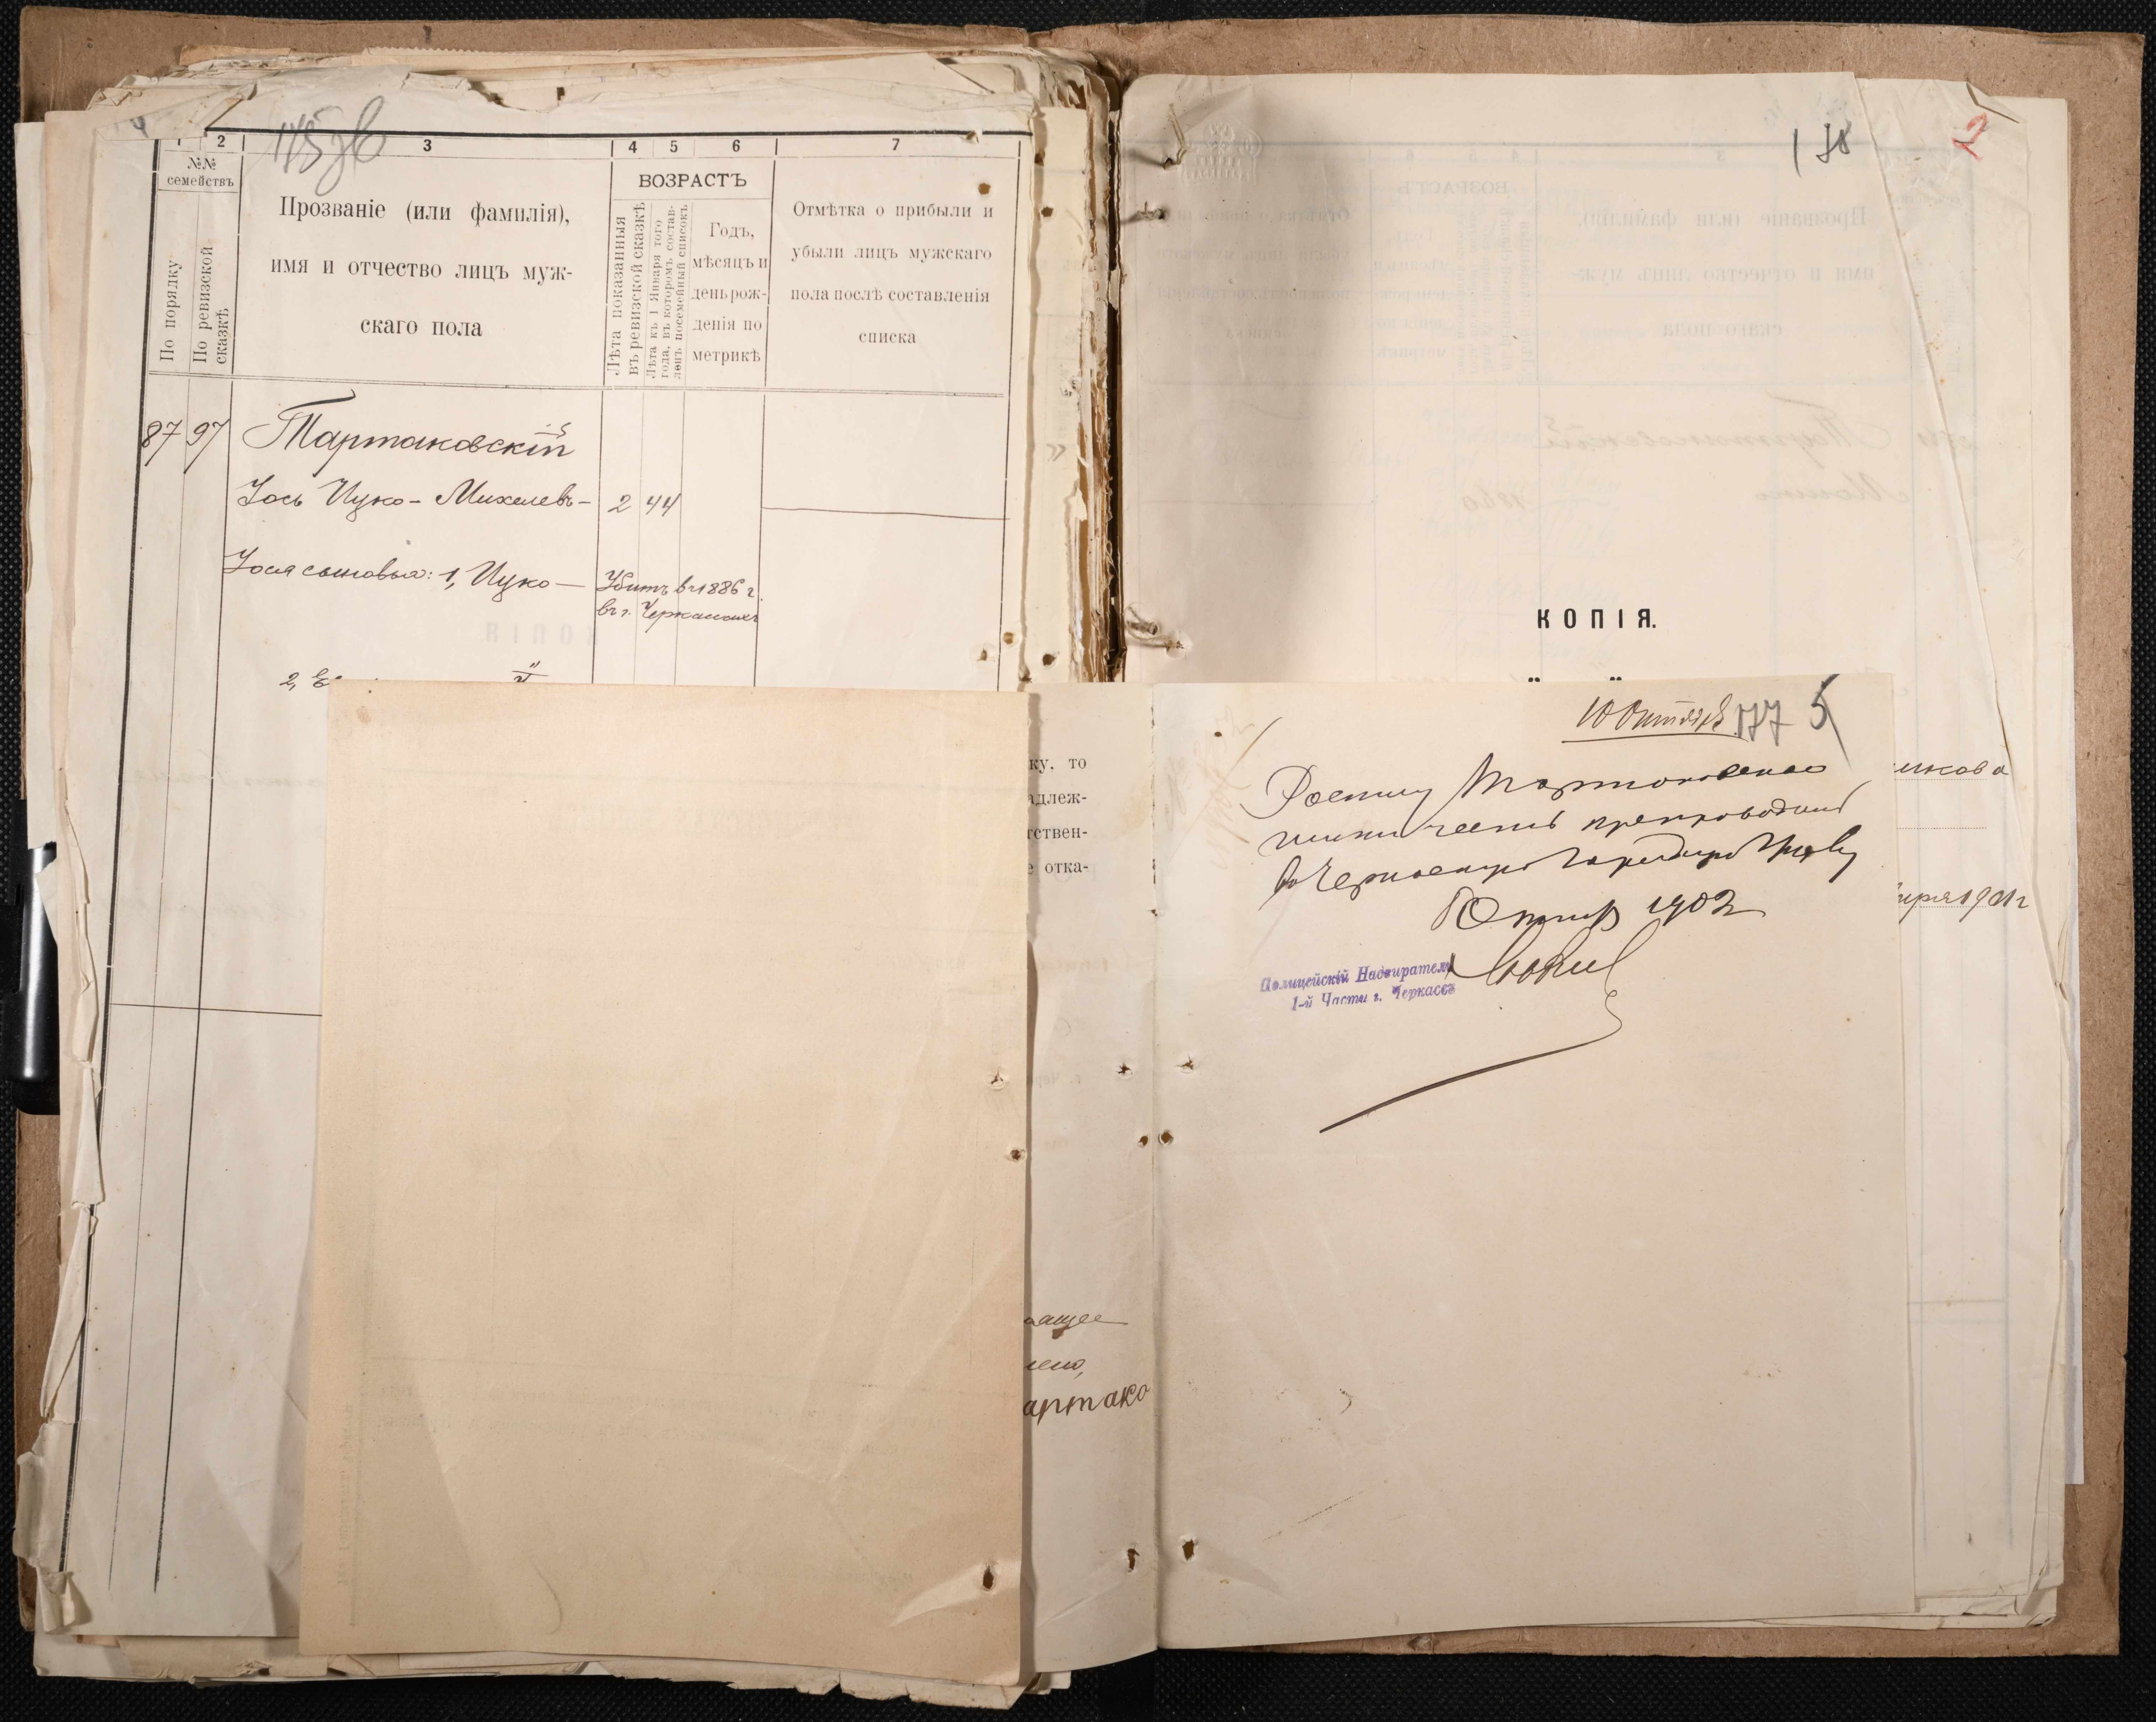 1 2 3 4 5 6 7
№№ семействъ
По порядку
По ревизской сказкѣ
Прозваніе (или фамилія),
имя и отчество лицъ муж-
скаго пола
ВОЗРАСТЪ
Лѣта показанныя
въ ревизской сказкѣ
Лѣта къ 1 Января того
года, въ которомъ состав-
ленъ посемейный списокъ
Годъ,
мѣсяцъ и
день рож-
денія по
метрикѣ
Отмѣтка о прибыли и
убыли лицъ мужскаго
пола послѣ составленія
списка
87 97 Тартаковскій
Іось Ицко-Михелевъ- 2 44
Іося сыновья: 1, Ицко — Убитъ въ 1886 г.
въ г. Черкассахъ
2,
ку, то
адлеж-
тствен-
е отка-
ащее
лено,
артако
178
2
КОПІЯ.
10 Октября 177 5
Тартаковскаго
препроводить
1902
Полицейскій Надзиратель
1-й Части г. Черкассъ
икова
аря 1901 г